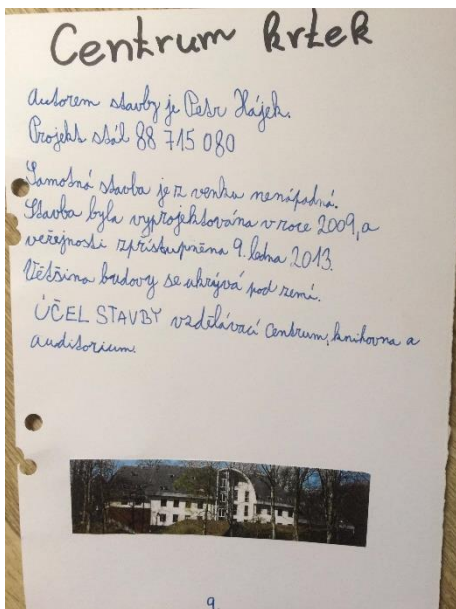 Centrum krtek
autorem stavby je Petr Hájek.
Projekt stál 88 715 080
Samotná stavba je z venku nenápadná.
Stavba byla vyprojektována v roce 2009, a
veřejnosti zpřístupněna 9. ledna 2013.
Většina budovy se ukrývá pod zemí.
ÚČEL STAVBY vzdělávací centrum, knihovna a
auditorium.
9.